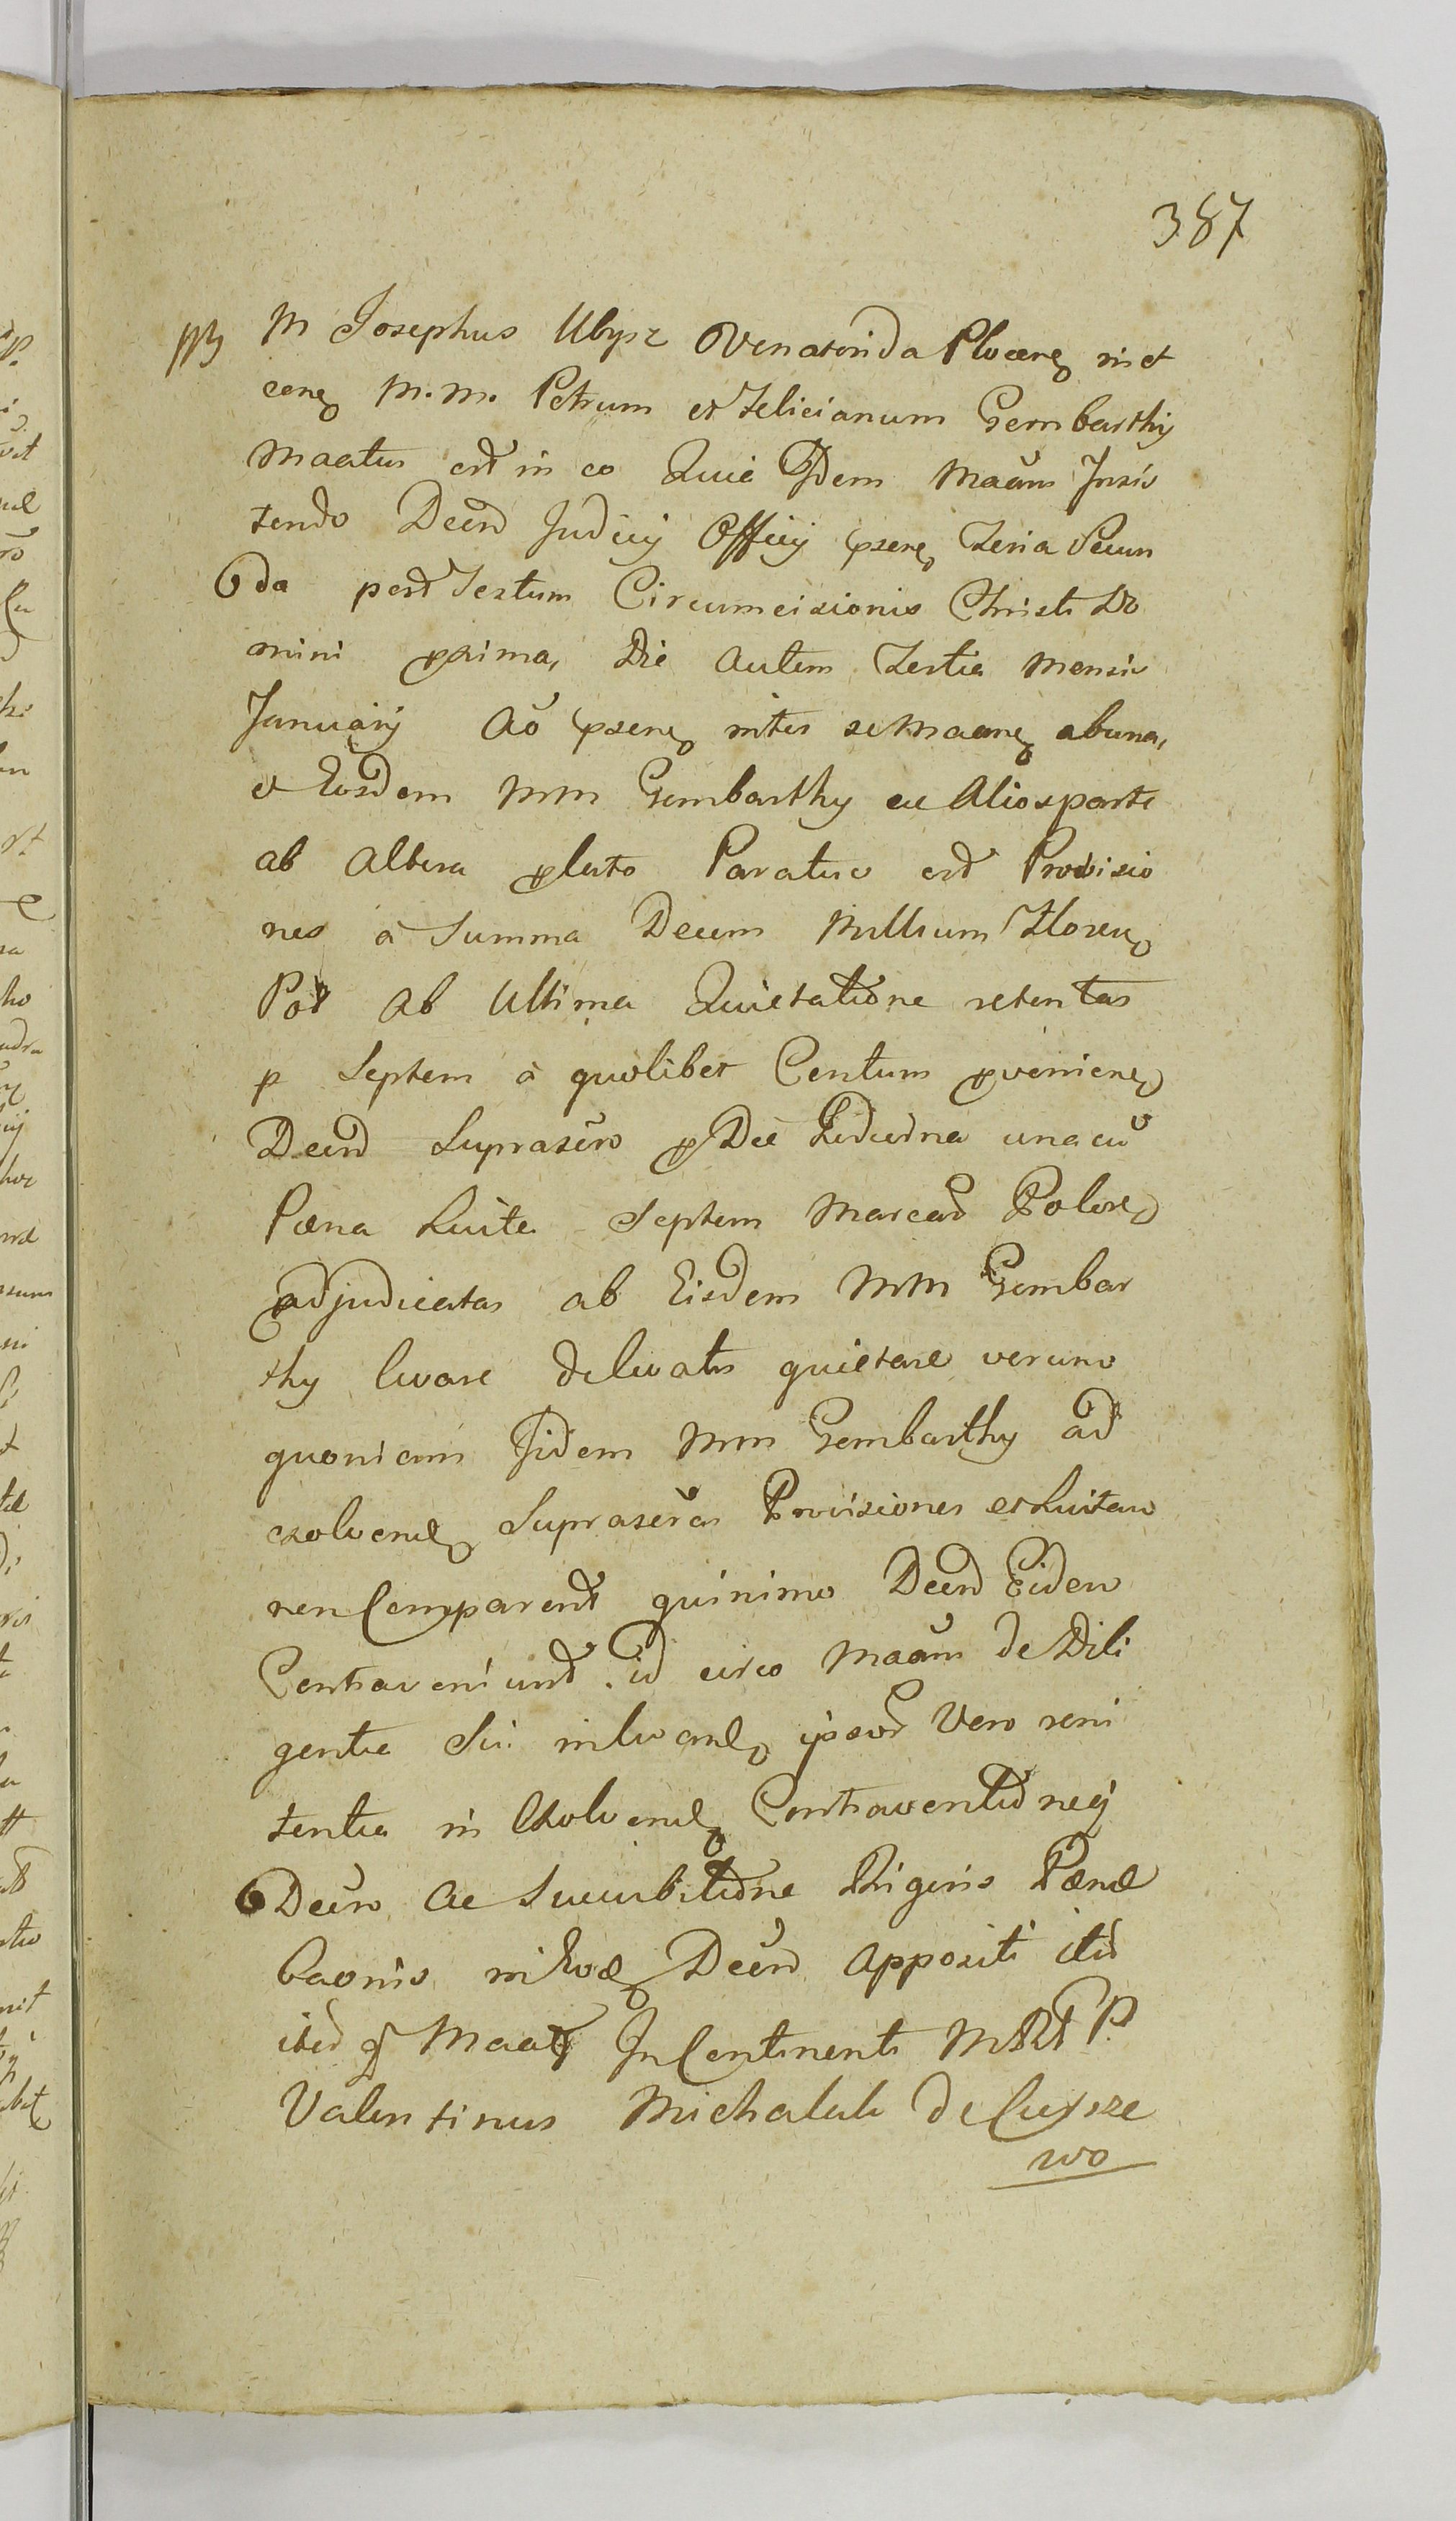 387
M Josephus Ubysz Venatorida Plocens in et
cens M. M. Petrum et Felicianum Gembarthy
Maatus est in eo Quia Idem Maans Insis
tendo Decro Judicij Officij psens Feria Secun
da post Festum Circumcisionis Christi Do
mini pxima, Die Autem Tertia Mensis
Januarij Ao psens inter se Maane ab una,
et Eosdem MM Gembarthy ac Alios parte
ab Altera plato Paratus est Provisio
nes à Summa Decem Millium Floren
Pol ab Ultima Quietatione retentas
p Septem à quolibet Centum pvenien
Decro Suprascro p Die Hodierna una cu
Pæna Luita Septem Marcar Polon
adjudicatas ab Eisdem MM Gembar
thy levare de levatis quietare verum
quoniam Iidem MM Gembarthy ad
exolvend Suprascras Provisiones et Luitam
non Comparent quinimo Decro Eidem
Contraveniunt id circo Maans de Dili
gentia Sui in levand ipsor Vero reni
tentia in Exolvend Contraventioneq
Decro ac Succubitione Rigoris Pænæ
Baonis in Eod Decro Appositi itu
itu q Maats In Continenti MRD P.
Valentinus Michalski de Cusze
wo